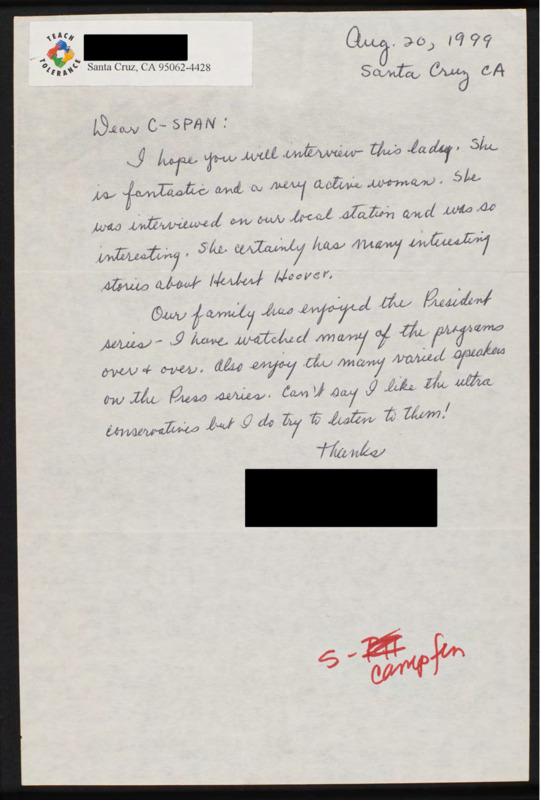 TEACH
TOLERANCE
Santa Cruz, CA 95062-4428
Aug. 20, 1999
Santa Cruz CA
Dear C-SPAN:
I hope you will interview this lady. She
is fantastic and a very active woman. She
was interviewed on our local station and was so
interesting. She certainly has many interesting
stories about Herbert Hoover.
Our family has enjoyed the President
series - I have watched many of the programs
over & over. Also enjoy the many varied speakers
on the Press series. Can't say I like the ultra
conservatives but I do try to listen to them!
Thanks
S -